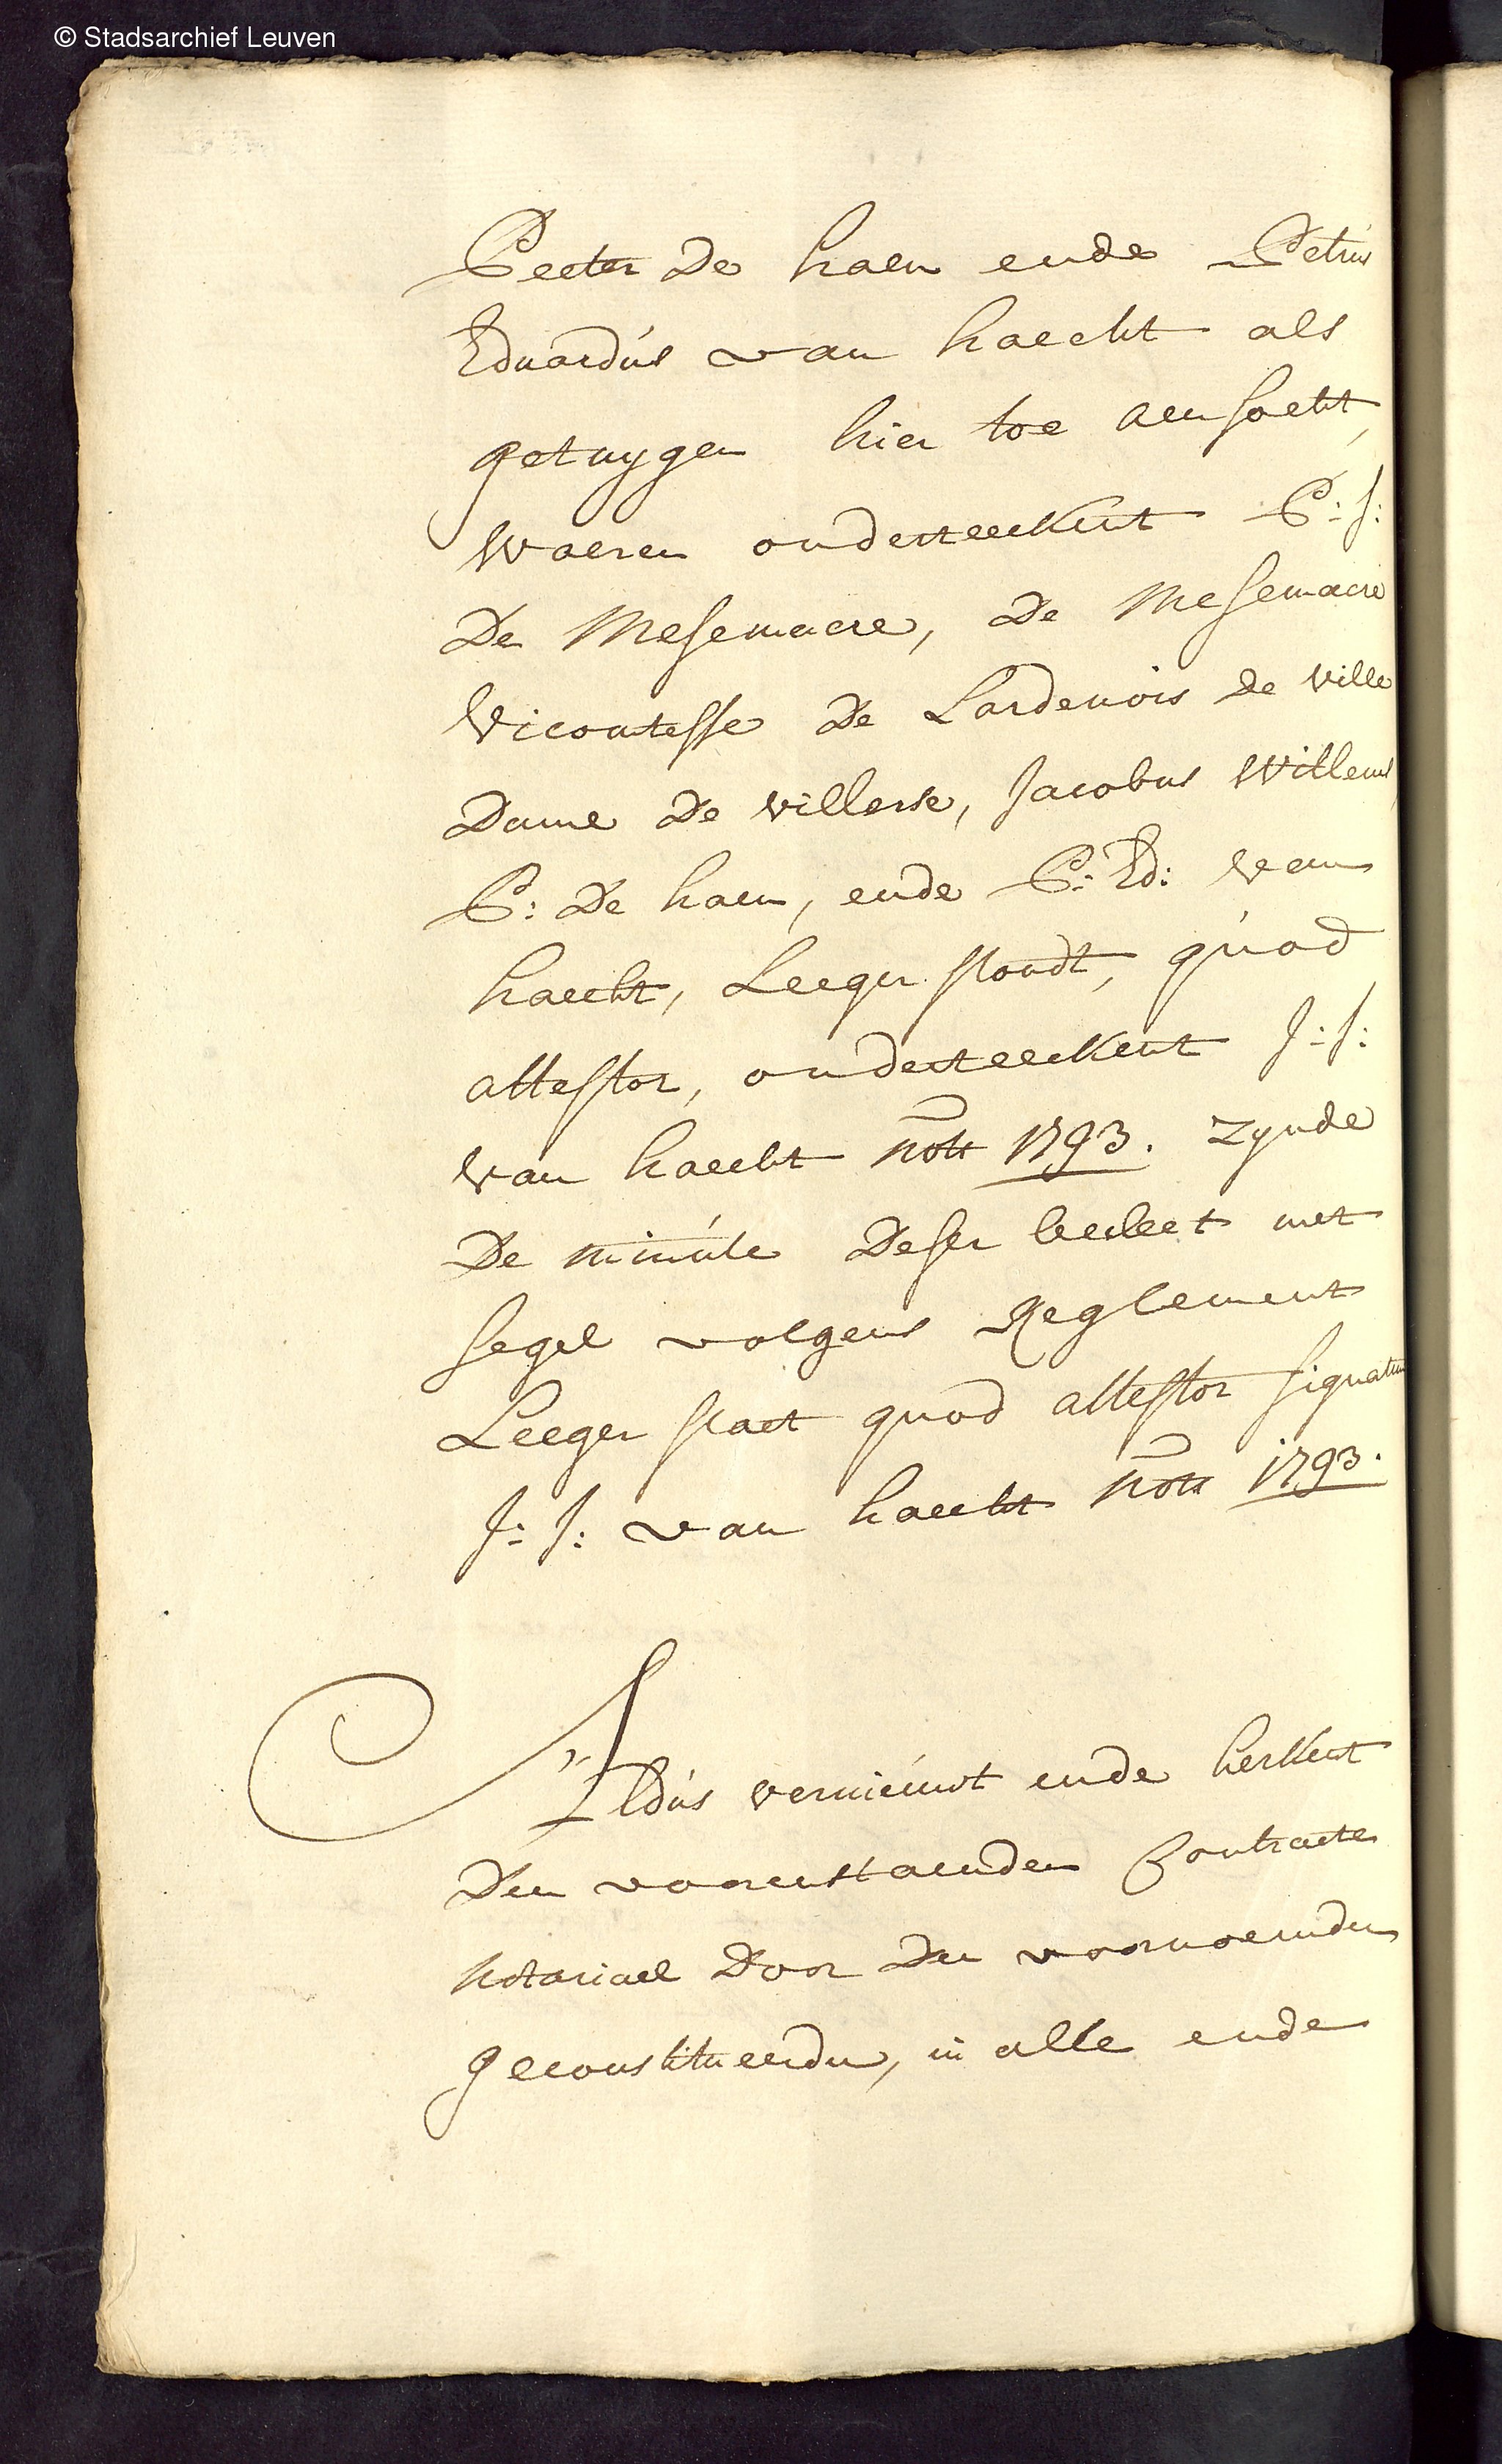 © Stadsarchief Leuven
Peeter De haen ende Petrus
Eduardús van haecht als
getuygen hier toe aensocht,
Waeren onderteeckent P: J:
De Mesemacre, De Mesemacre
Vicomtesse De Lardenois de ville
Dame De villerse, Jacobus Willems
P: De haen, ende P: Ed: van
haecht, Leeger stondt, qúod
attestor, onderteeckent J: J:
van haecht nots 1793. zynde
De minúte Deser becleet met
segel volgens Reglement
Leeger staet quod attestor signatum
J: J: van haecht nots 1793.
Aldús vernieúwt ende herkent
Den voorenstaenden Contracte
notariael Door Den voornoemden
geconstitueerden, in alle ende